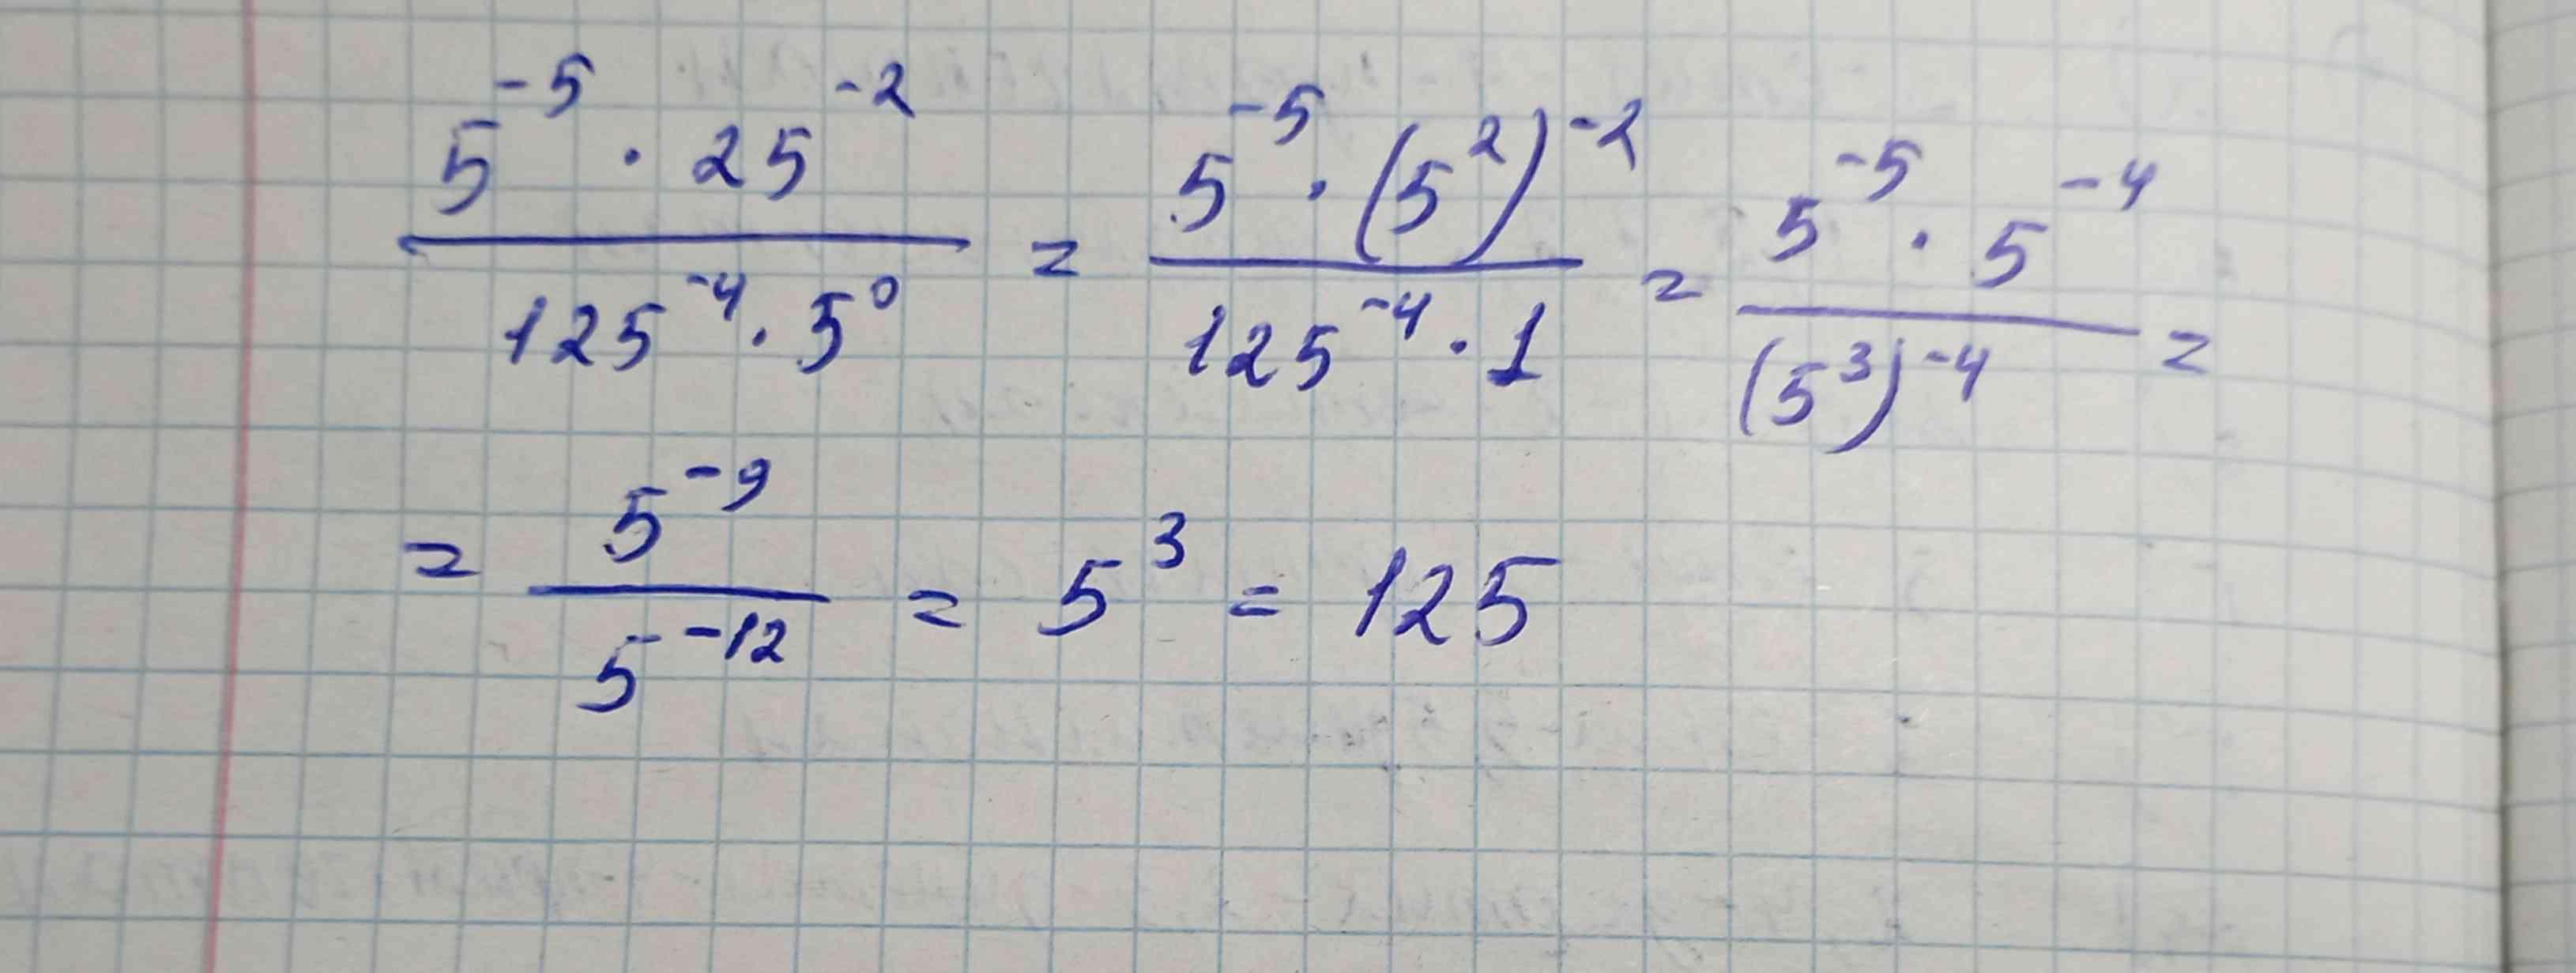 \frac{5^{-5} \cdot 25^{-2}}{125^{-4} \cdot 5^{0}} = \frac{5^{-5} \cdot (5^{2})^{-2}}{125^{-4} \cdot 1} = \frac{5^{-5} \cdot 5^{-4}}{(5^{3})^{-4}} =
= \frac{5^{-9}}{5^{-12}} = 5^{3} = 125